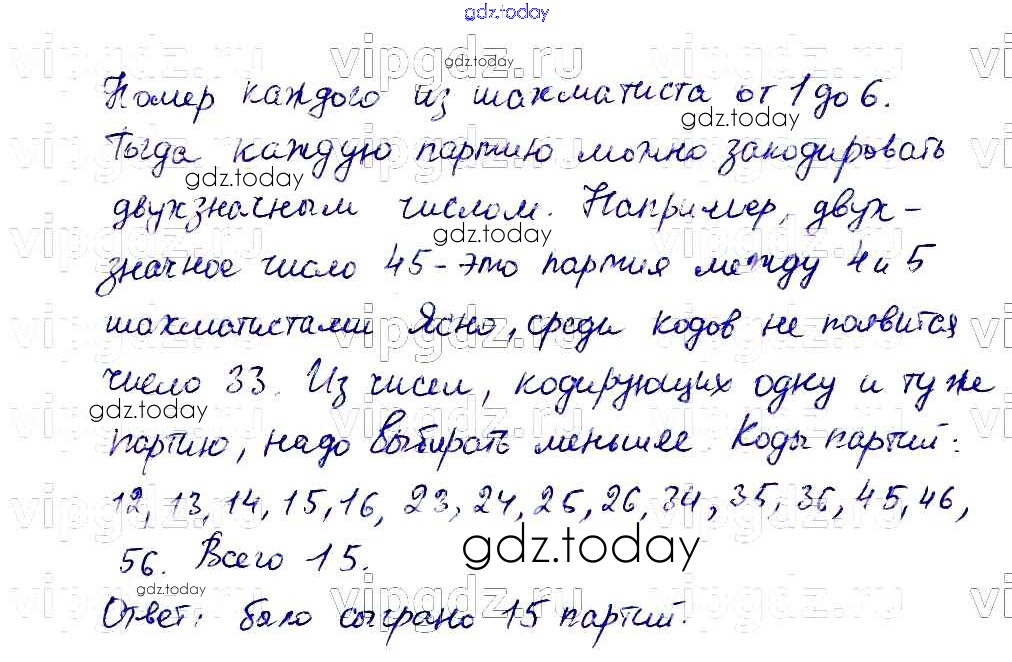 gdz.today
Номер каждого из шахматиста от 1 до 6.
Тогда каждую партию можно закодировать
двухзначным числом. Например, двух-
значное число 45 - это партия между 4 и 5
шахматистами Ясно, среди кодов не появится
число 33. Из чисел, кодирующих одну и ту же
партию, надо выбирать меньшее. Коды партий:
12, 13, 14, 15, 16, 23, 24, 25, 26, 34, 35, 36, 45, 46,
56. Всего 15.
gdz.today
Ответ: было сыграно 15 партий.